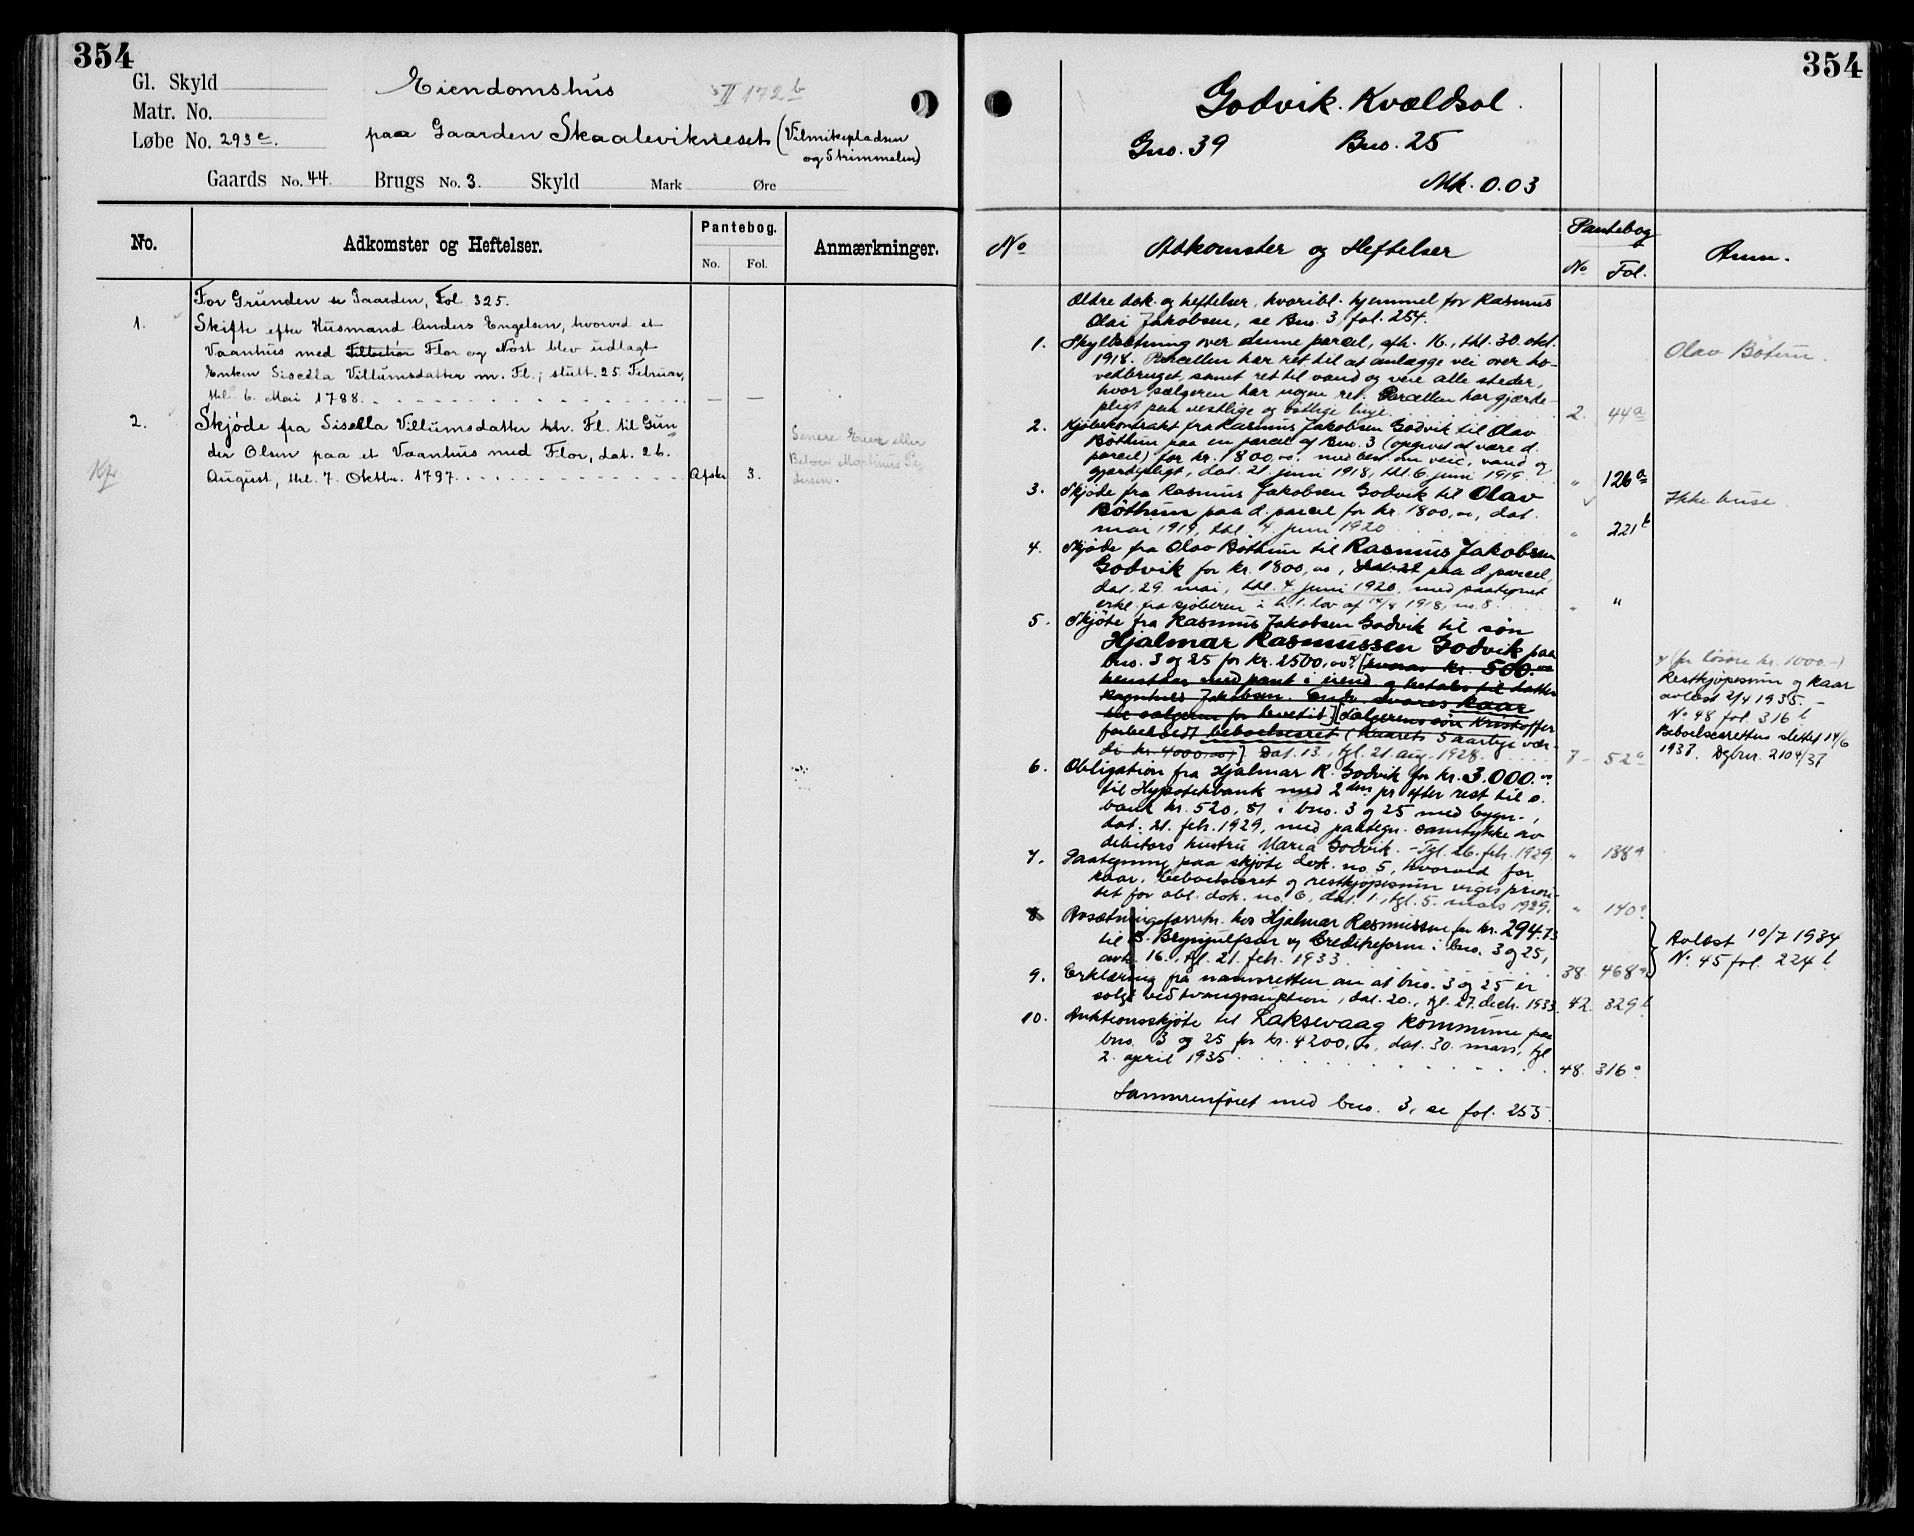 354
Gl. Skyld
Matr. No.
Løbe No. 293c.
Eiendomshus
II 172b
paa Gaarden Skaaleviknesets (Vilmikepladsen
og Strimmelen)
Gaards No. 44. Brugs No. 3. Skyld Mark Øre
No. Adkomster og Heftelser. Pantebog. Anmærkninger.
No. Fol.
For Grunden se Gaarden, Fol. 325.
1. Skifte efter Husmand Anders Engelsen, hvorved et
Vaanhus med Tilbehør Flor og Nøst blev udlagt
Enken Sisella Villumsdatter m. Fl.; slutt. 25. Februar,
thl. 6. Mai 1788.
2. Skjøde fra Sisella Villumsdatter m. Fl. til Gun-
der Olsen paa et Vaanhus med Flor, dat. 26.
August, thl. 7. Oktbr. 1797. Afskr. 3.
Senere Eier eller
Beboer Marthinus Pe-
dersen.
354
Godvik. Kvældsol.
Gno. 39 Bno. 25
Mk. 0.03
No Adkomster og Heftelser Pantebog Anm.
No Fol.
Ældre dok. og heftelser, hvoribl. hjemmel for Rasmus
Olai Jakobsen, se Bno. 3, fol. 254.
1. Skyldsætning over denne parcel, afh. 16., thl. 30. okt.
1918. Parcellen har ret til at anlægge vei over ho-
vedbruget, samt ret til vand og veie alle steder,
hvor sælgeren har nogen ret. Parcellen har gjærde-
pligt paa vestlige og østlige linje. 2. 44a
Olav Bøtun.
2. Kjøbekontrakt fra Rasmus Jakobsen Godvik til Olav
Bøthun paa en parcel af Bno. 3 (opgivet at være d.
parcel) for kr. 1800,oo, med best. om veie, vand og
gjærdepligt, dat. 21. juni 1918, thl. 6. juni 1919. " 126a
3. Skjøde fra Rasmus Jakobsen Godvik til Olav
Bøthun paa d. parcel for kr. 1800,oo, dat.
mai 1919, thl. 4. juni 1920 " 221b
Ikke huse.
4. Skjøde fra Olav Bøthun til Rasmus Jakobsen
Godvik for kr. 1800,oo, paa d. parcel,
dat. 29. mai, thl. 4. juni 1920, med paategnet
erkl. fra kjøberen i h. t. lov af 14/8 1918, no. 8. " "
5. Skjøte fra Rasmus Jakobsen Godvik til søn
Hjalmar Rasmussen Godvik paa
bno. 3 og 25 for kr. 2500,oo x [hvorav kr. 500.oo
henstaar med pant i eiend. og betales til datter
Ragnhild Jakobsen. Endv. svares kaar
til sælgeren for levetid.] [Sælgerens søn Kristoffer
forbeholdt beboelsesret (Kaarets 5 aarlige vær-
di kr. 4000,oo)] Dat. 13., tgl. 21. aug. 1928. 7 52a
x (for løsøre kr. 1000.-)
Restkjøpesum og kaar
avlæst 2/4 1935.-
No 48 fol. 316b
Beboelsesretten slettet 14/6
1937. Dgbnr. 2104/37
6. Obligation fra Hjalmar R. Godvik for kr. 3.000.oo
til Hypotekbank med 2den pr. efter rest til s.
bank kr. 520,81 i bno. 3 og 25 med bygn.,
dat. 21. feb. 1929, med paategn. samtykke av
debitors hustru Maria Godvik. - Tgl. 26. feb. 1929. " 138a
7. Paategning paa skjøte dok. no. 5, hvorved for
kaar, beboelsesret og restkjøpesum viges priori-
tet for obl. dok. no. 6, dat. 1., tgl. 5. mars 1929. " 140a
8. Utsætningsforretn. hos Hjalmar Rasmussen for kr. 294.73
til B. Brynjulfsen og Kreditreform i bno. 3 og 25,
avh. 16., tgl. 21. feb. 1933. 38. 468a
Avlæst 10/7 1934
No. 45 fol. 224b
9. Erklæring fra namsretten om at bno. 3 og 25 er
solgt ved tvangsauktion, dat. 20., tgl. 27. decb. 1933. 42. 329b
10. Auktionsskjøte til Laksevaag kommune paa
bno. 3 og 25 for kr. 4200,oo, dat. 30. mars, tgl.
2. april 1935 48. 316a
Sammenføiet med bno. 3, se fol. 255.